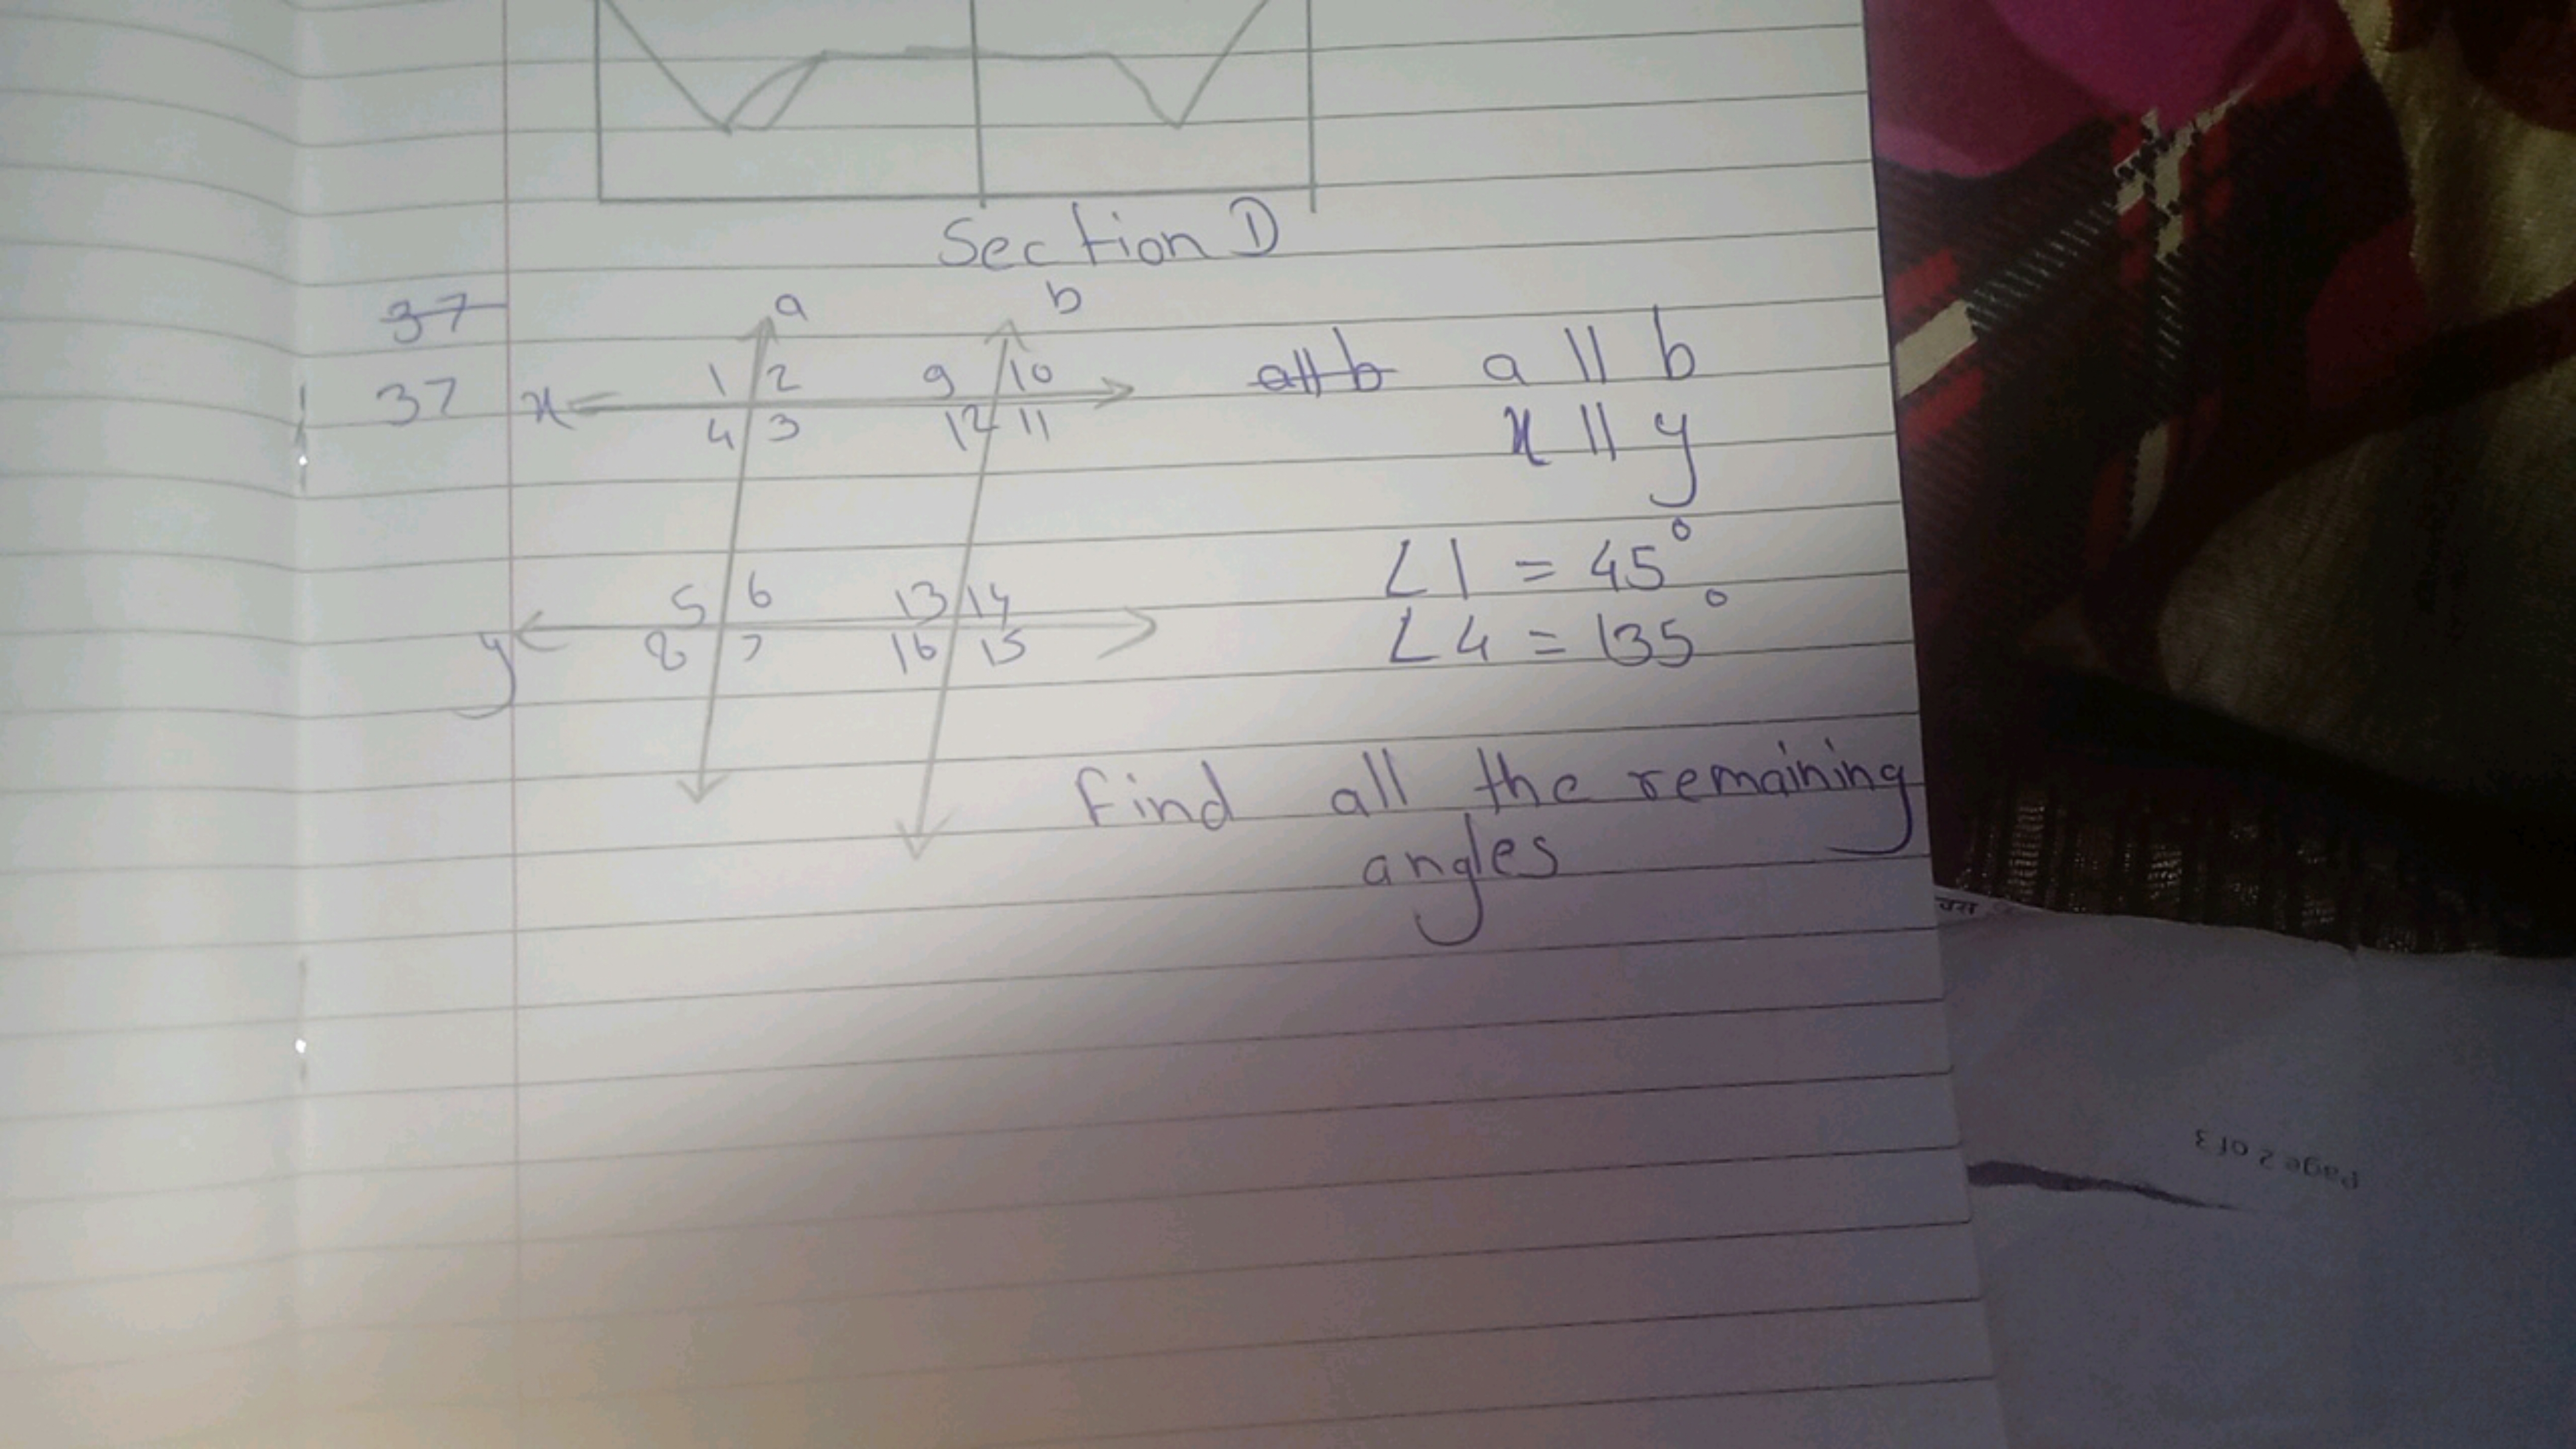 Section D
37
a b
1 2 9 10
37 x 4 3 12 11
a || b a || b
x || y
5 6 13 14
y 8 7 16 15
∠1 = 45°
∠4 = 135°
Find all the remaining
angles
Page 2 of 3